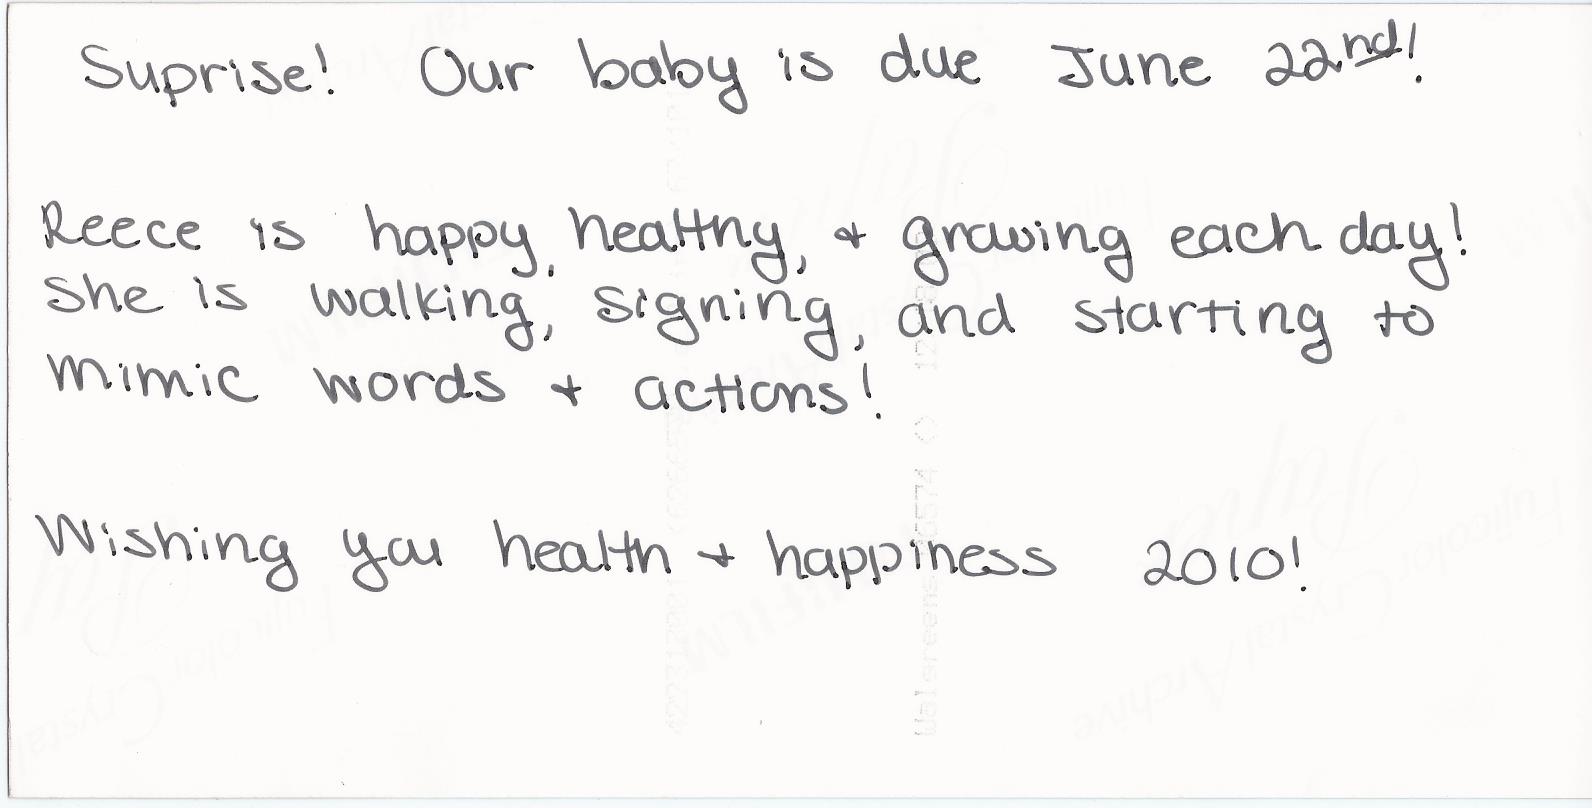 Suprise! Our baby is due June 22nd!
Reece is happy, healthy, + growing each day!
She is walking, signing, and starting to
mimic words + actions!
Wishing you health + happiness 2010!